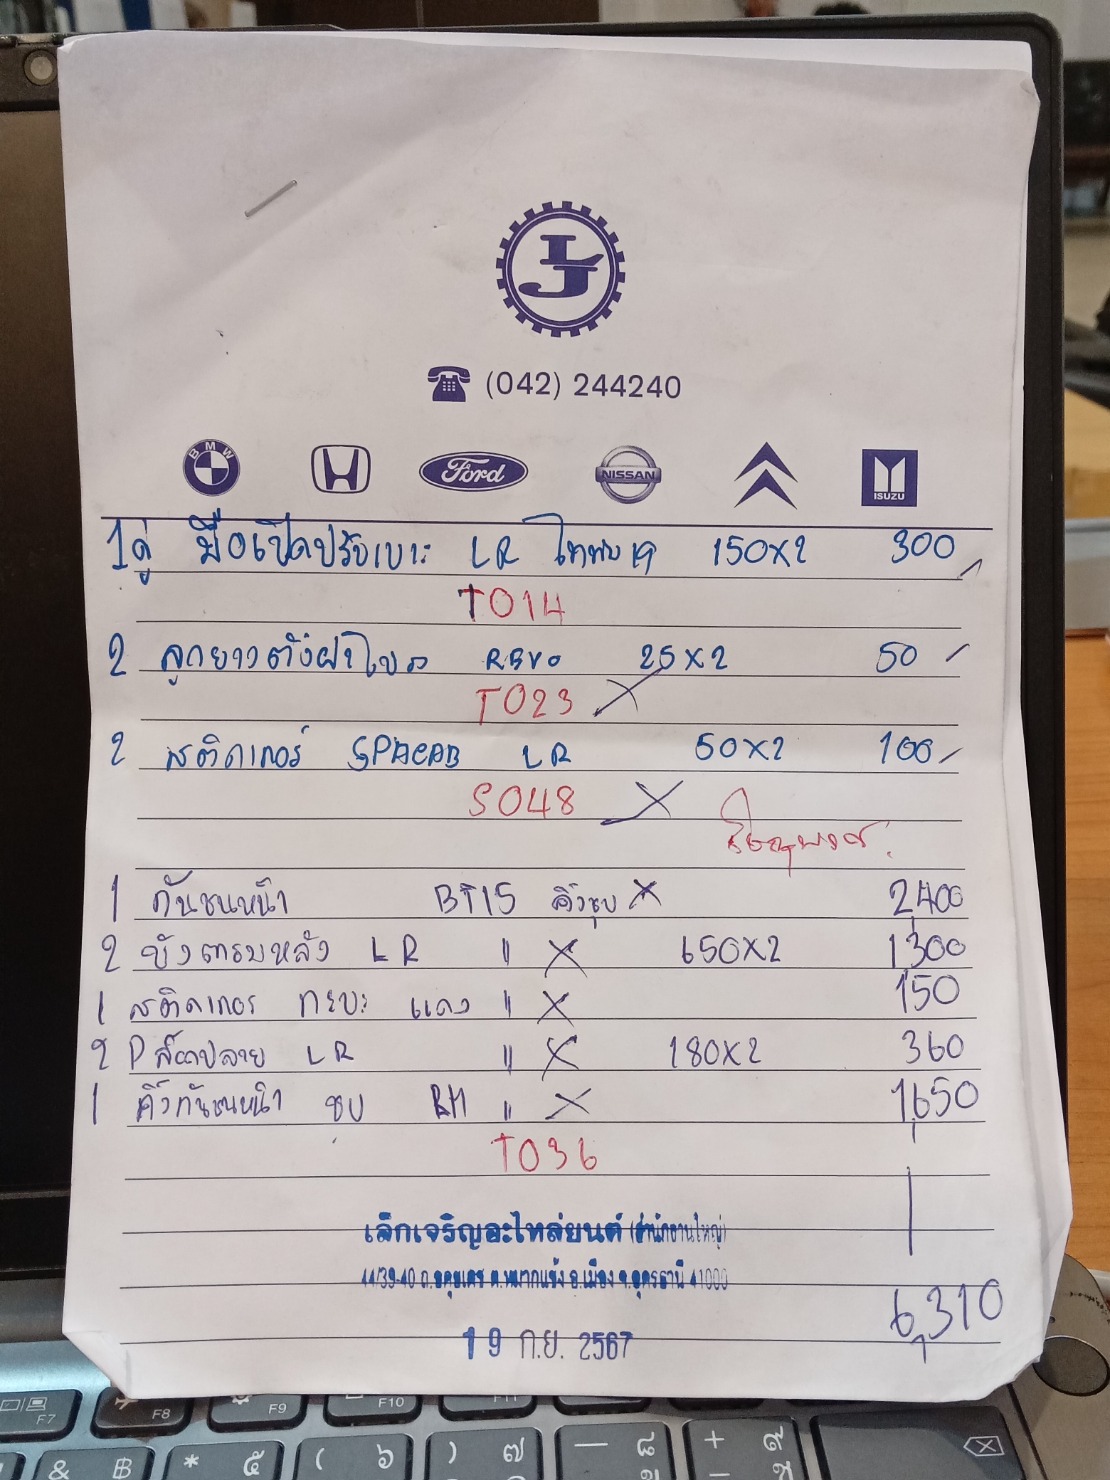 LJ
(042) 244240
BMW Ford NISSAN ISUZU
1คู่ มือเปิดปรับเบาะ LR ไททัน 150X2 300
T014
2 ลูกยางตั้งฝากระโปรง REVO 25X2 50
T023
2 สติกเกอร์ SPACAB LR 50X2 100
S048
1 กันชนหน้า BT15 คิ้วชุบ 2,400
2 บังตรมหลัง LR " 650X2 1300
1 สติกเกอร์ กระบะ แดง " 150
2 LR " 180X2 360
1 คิ้วกันชนหน้า ชุบ " 1,650
T036
เล็กเจริญอะไหล่ยนต์ (สำนักงานใหญ่)
ต.หมากแข้ง อ.เมือง จ.อุดรธานี 41000
19 ก.ย. 2567
6,310
F7 F8 F9 F10
& ฿ * ๕ ( ๖ ) ๗ — ๘ + ๙